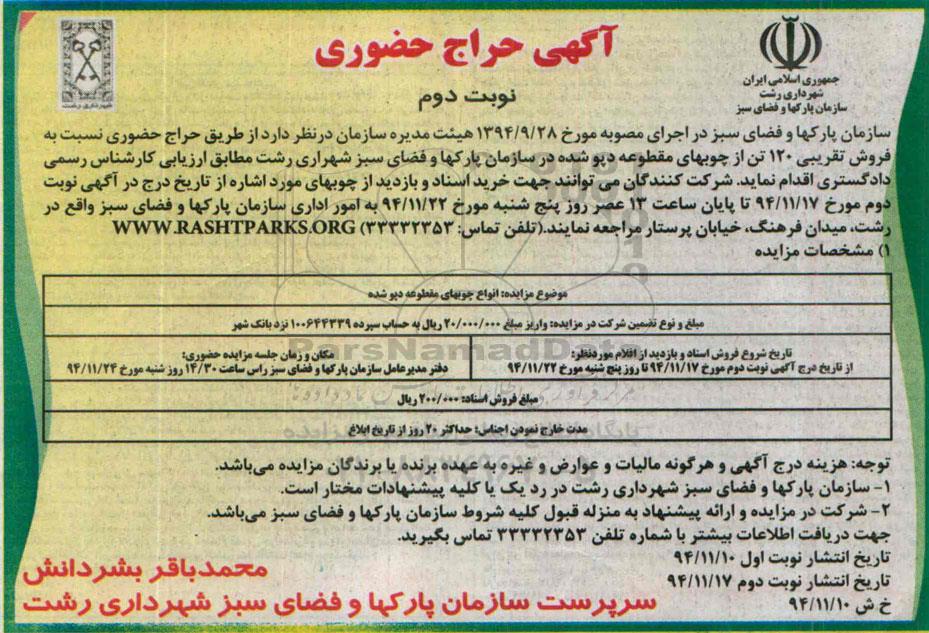 آگهی حراج حضوری
نوبت دوم
جمهوری اسلامی ایران
شهرداری رشت
سازمان پارکها و فضای سبز
شهرداری رشت
سازمان پارکها و فضای سبز در اجرای مصوبه مورخ ۱۳۹۴/۹/۲۸ هیئت مدیره سازمان درنظر دارد از طریق حراج حضوری نسبت به
فروش تقریبی ۱۲۰ تن از چوبهای مقطوعه دپو شده در سازمان پارکها و فضای سبز شهراری رشت مطابق ارزیابی کارشناس رسمی
دادگستری اقدام نماید. شرکت کنندگان می توانند جهت خرید اسناد و بازدید از چوبهای مورد اشاره از تاریخ درج در آگهی نوبت
دوم مورخ ۹۴/۱۱/۱۷ تا پایان ساعت ۱۳ عصر روز پنج شنبه مورخ ۹۴/۱۱/۲۲ به امور اداری سازمان پارکها و فضای سبز واقع در
رشت، میدان فرهنگ، خیابان پرستار مراجعه نمایند.(تلفن تماس: ۳۳۳۳۲۳۵۳) WWW.RASHTPARKS.ORG
۱) مشخصات مزایده
موضوع مزایده: انواع چوبهای مقطوعه دپو شده
مبلغ و نوع تضمین شرکت در مزایده: واریز مبلغ ۲۰/۰۰۰/۰۰۰ ریال به حساب سپرده ۱۰۰۶۴۴۳۳۹ نزد بانک شهر
تاریخ شروع فروش اسناد و بازدید از اقلام موردنظر:
از تاریخ درج آگهی نوبت دوم مورخ ۹۴/۱۱/۱۷ تا روز پنج شنبه مورخ ۹۴/۱۱/۲۲
مکان و زمان جلسه مزایده حضوری:
دفتر مدیرعامل سازمان پارکها و فضای سبز راس ساعت ۱۴/۳۰ روز شنبه مورخ ۹۴/۱۱/۲۴
مبلغ فروش اسناد: ۲۰۰/۰۰۰ ریال
مدت خارج نمودن اجناس: حداکثر ۲۰ روز از تاریخ ابلاغ
ParsNamadData
توجه: هزینه درج آگهی و هرگونه مالیات و عوارض و غیره به عهده برنده یا برندگان مزایده می‌باشد.
۱- سازمان پارکها و فضای سبز شهرداری رشت در رد یک یا کلیه پیشنهادات مختار است.
۲- شرکت در مزایده و ارائه پیشنهاد به منزله قبول کلیه شروط سازمان پارکها و فضای سبز می‌باشد.
جهت دریافت اطلاعات بیشتر با شماره تلفن ۳۳۳۳۲۳۵۳ تماس بگیرید.
تاریخ انتشار نوبت اول ۹۴/۱۱/۱۰
تاریخ انتشار نوبت دوم ۹۴/۱۱/۱۷
خ ش ۹۴/۱۱/۱۰
محمدباقر بشردانش
سرپرست سازمان پارکها و فضای سبز شهرداری رشت